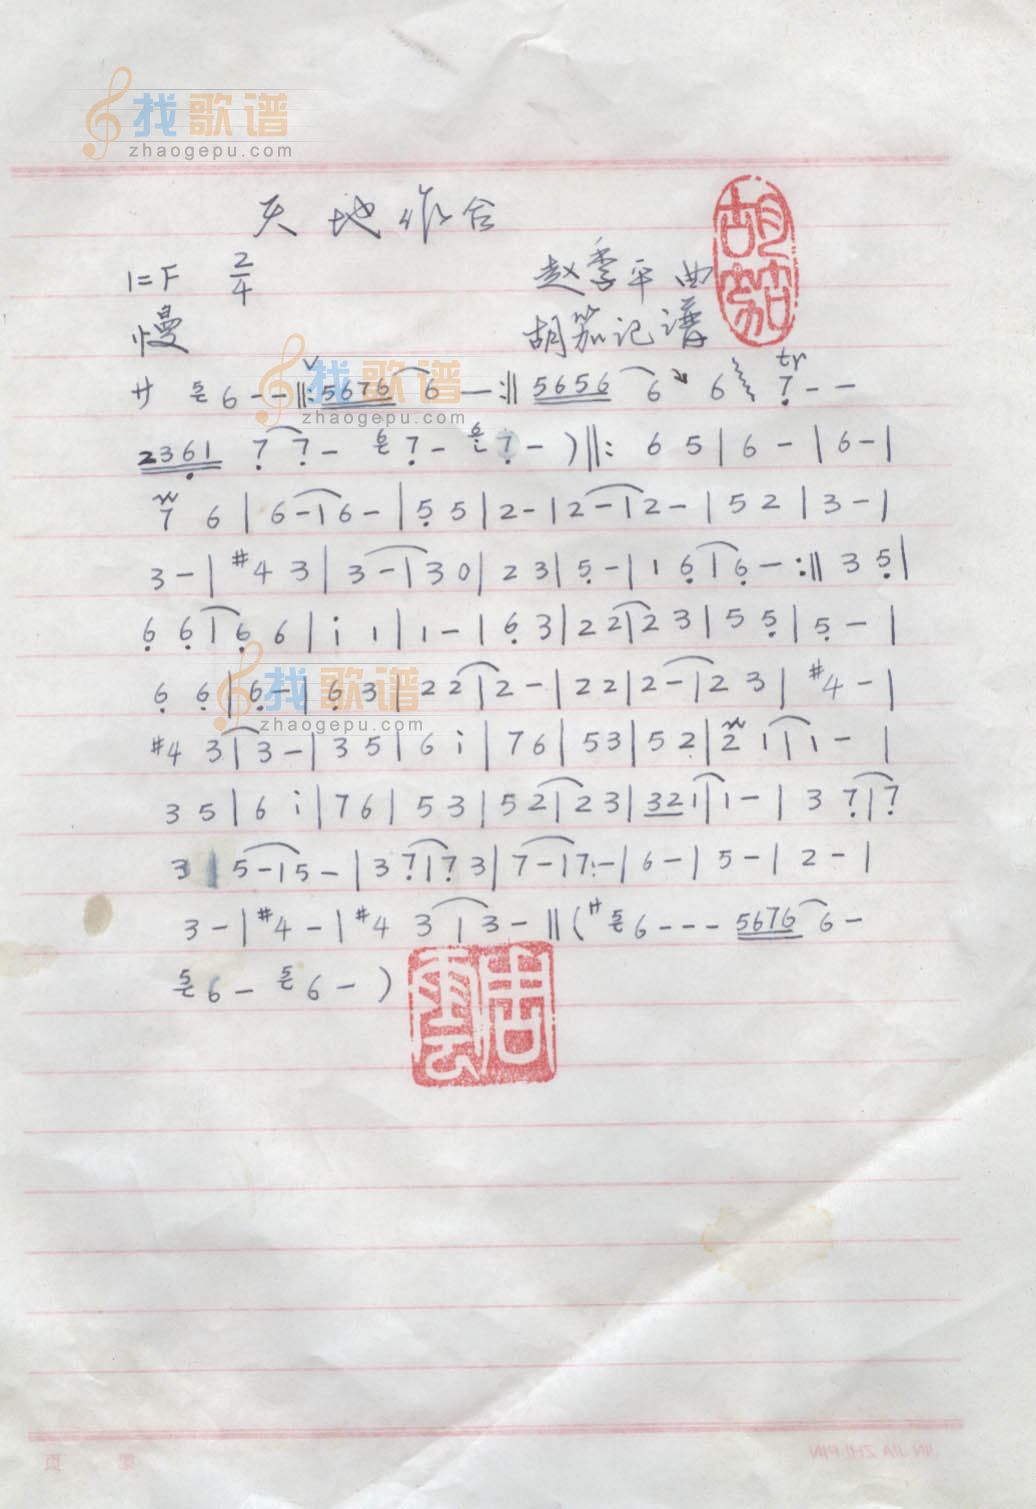 找歌谱
zhaogepu.com
天地作合
1=F 2/4
赵季平 曲
慢
胡笳记谱
胡笳
找歌谱
zhaogepu.com
tr
サ 5 6 - - ‖: 5676 6 — :‖ 5656 6 6 7 - -
2361 7 7 - 6 7 - 6i 7 - ) ‖: 6 5 | 6 - | 6 - |
7 6 | 6 - | 6 - | 5 5 | 2 - | 2 - | 2 - | 5 2 | 3 - |
3 - | #4 3 | 3 - | 3 0 | 2 3 | 5 - | 1 6 | 6 - :‖ 3 5 |
6 6 | 6 6 | i 1 | 1 - | 6 3 | 2 2 | 2 3 | 5 5 | 5 - |
6 6 | 6 - | 6 3 | 2 2 | 2 - | 2 2 | 2 - | 2 3 | #4 - |
找歌谱
zhaogepu.com
#4 3 | 3 - | 3 5 | 6 i | 7 6 | 5 3 | 5 2 | 2 1 | 1 - |
3 5 | 6 i | 7 6 | 5 3 | 5 2 | 2 3 | 32 1 | 1 - | 3 7 | 7
3 | 5 - | 5 - | 3 7 | 7 3 | 7 - | 7 - | 6 - | 5 - | 2 - |
3 - | #4 - | #4 3 | 3 - ‖ ( サ 5 6 - - - 5676 6 -
5 6 - 5 6 - )